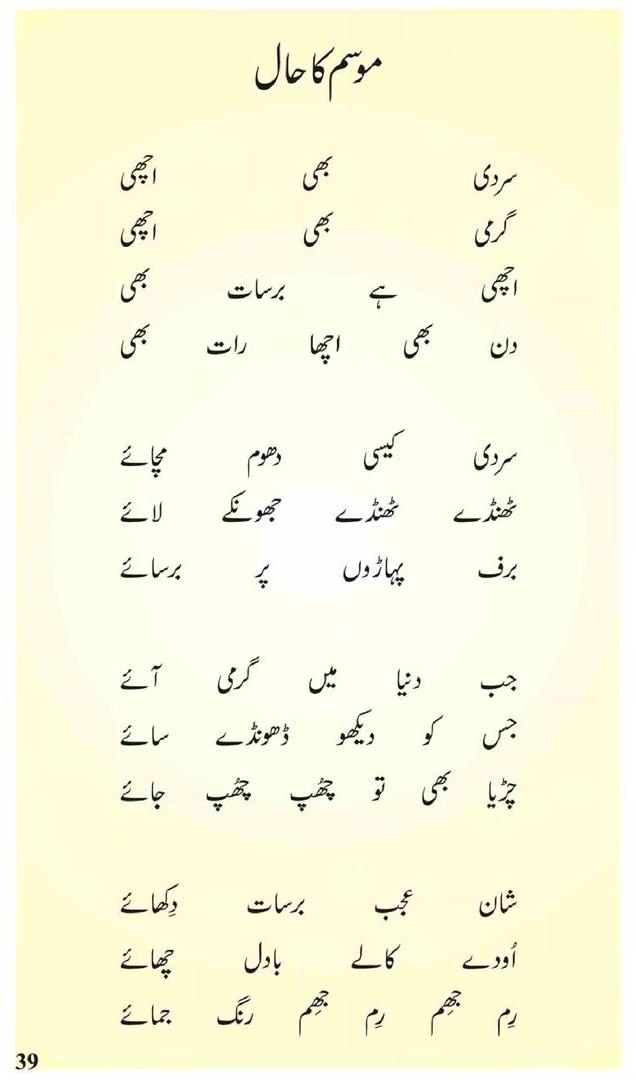 موسم کا حال
سردی بھی اچھی
گرمی بھی اچھی
اچھی ہے برسات بھی
دن بھی اچھا رات بھی
سردی کیسی دھوم مچائے
ٹھنڈے ٹھنڈے جھونکے لائے
برف پہاڑوں پر برسائے
جب دنیا میں گرمی آئے
جس کو دیکھو ڈھونڈے سائے
چڑیا بھی تو چھُپ چھُپ جائے
شان عجب برسات دِکھائے
اُودے کالے بادل چھائے
رِم جھِم رِم جھِم رنگ جمائے
39